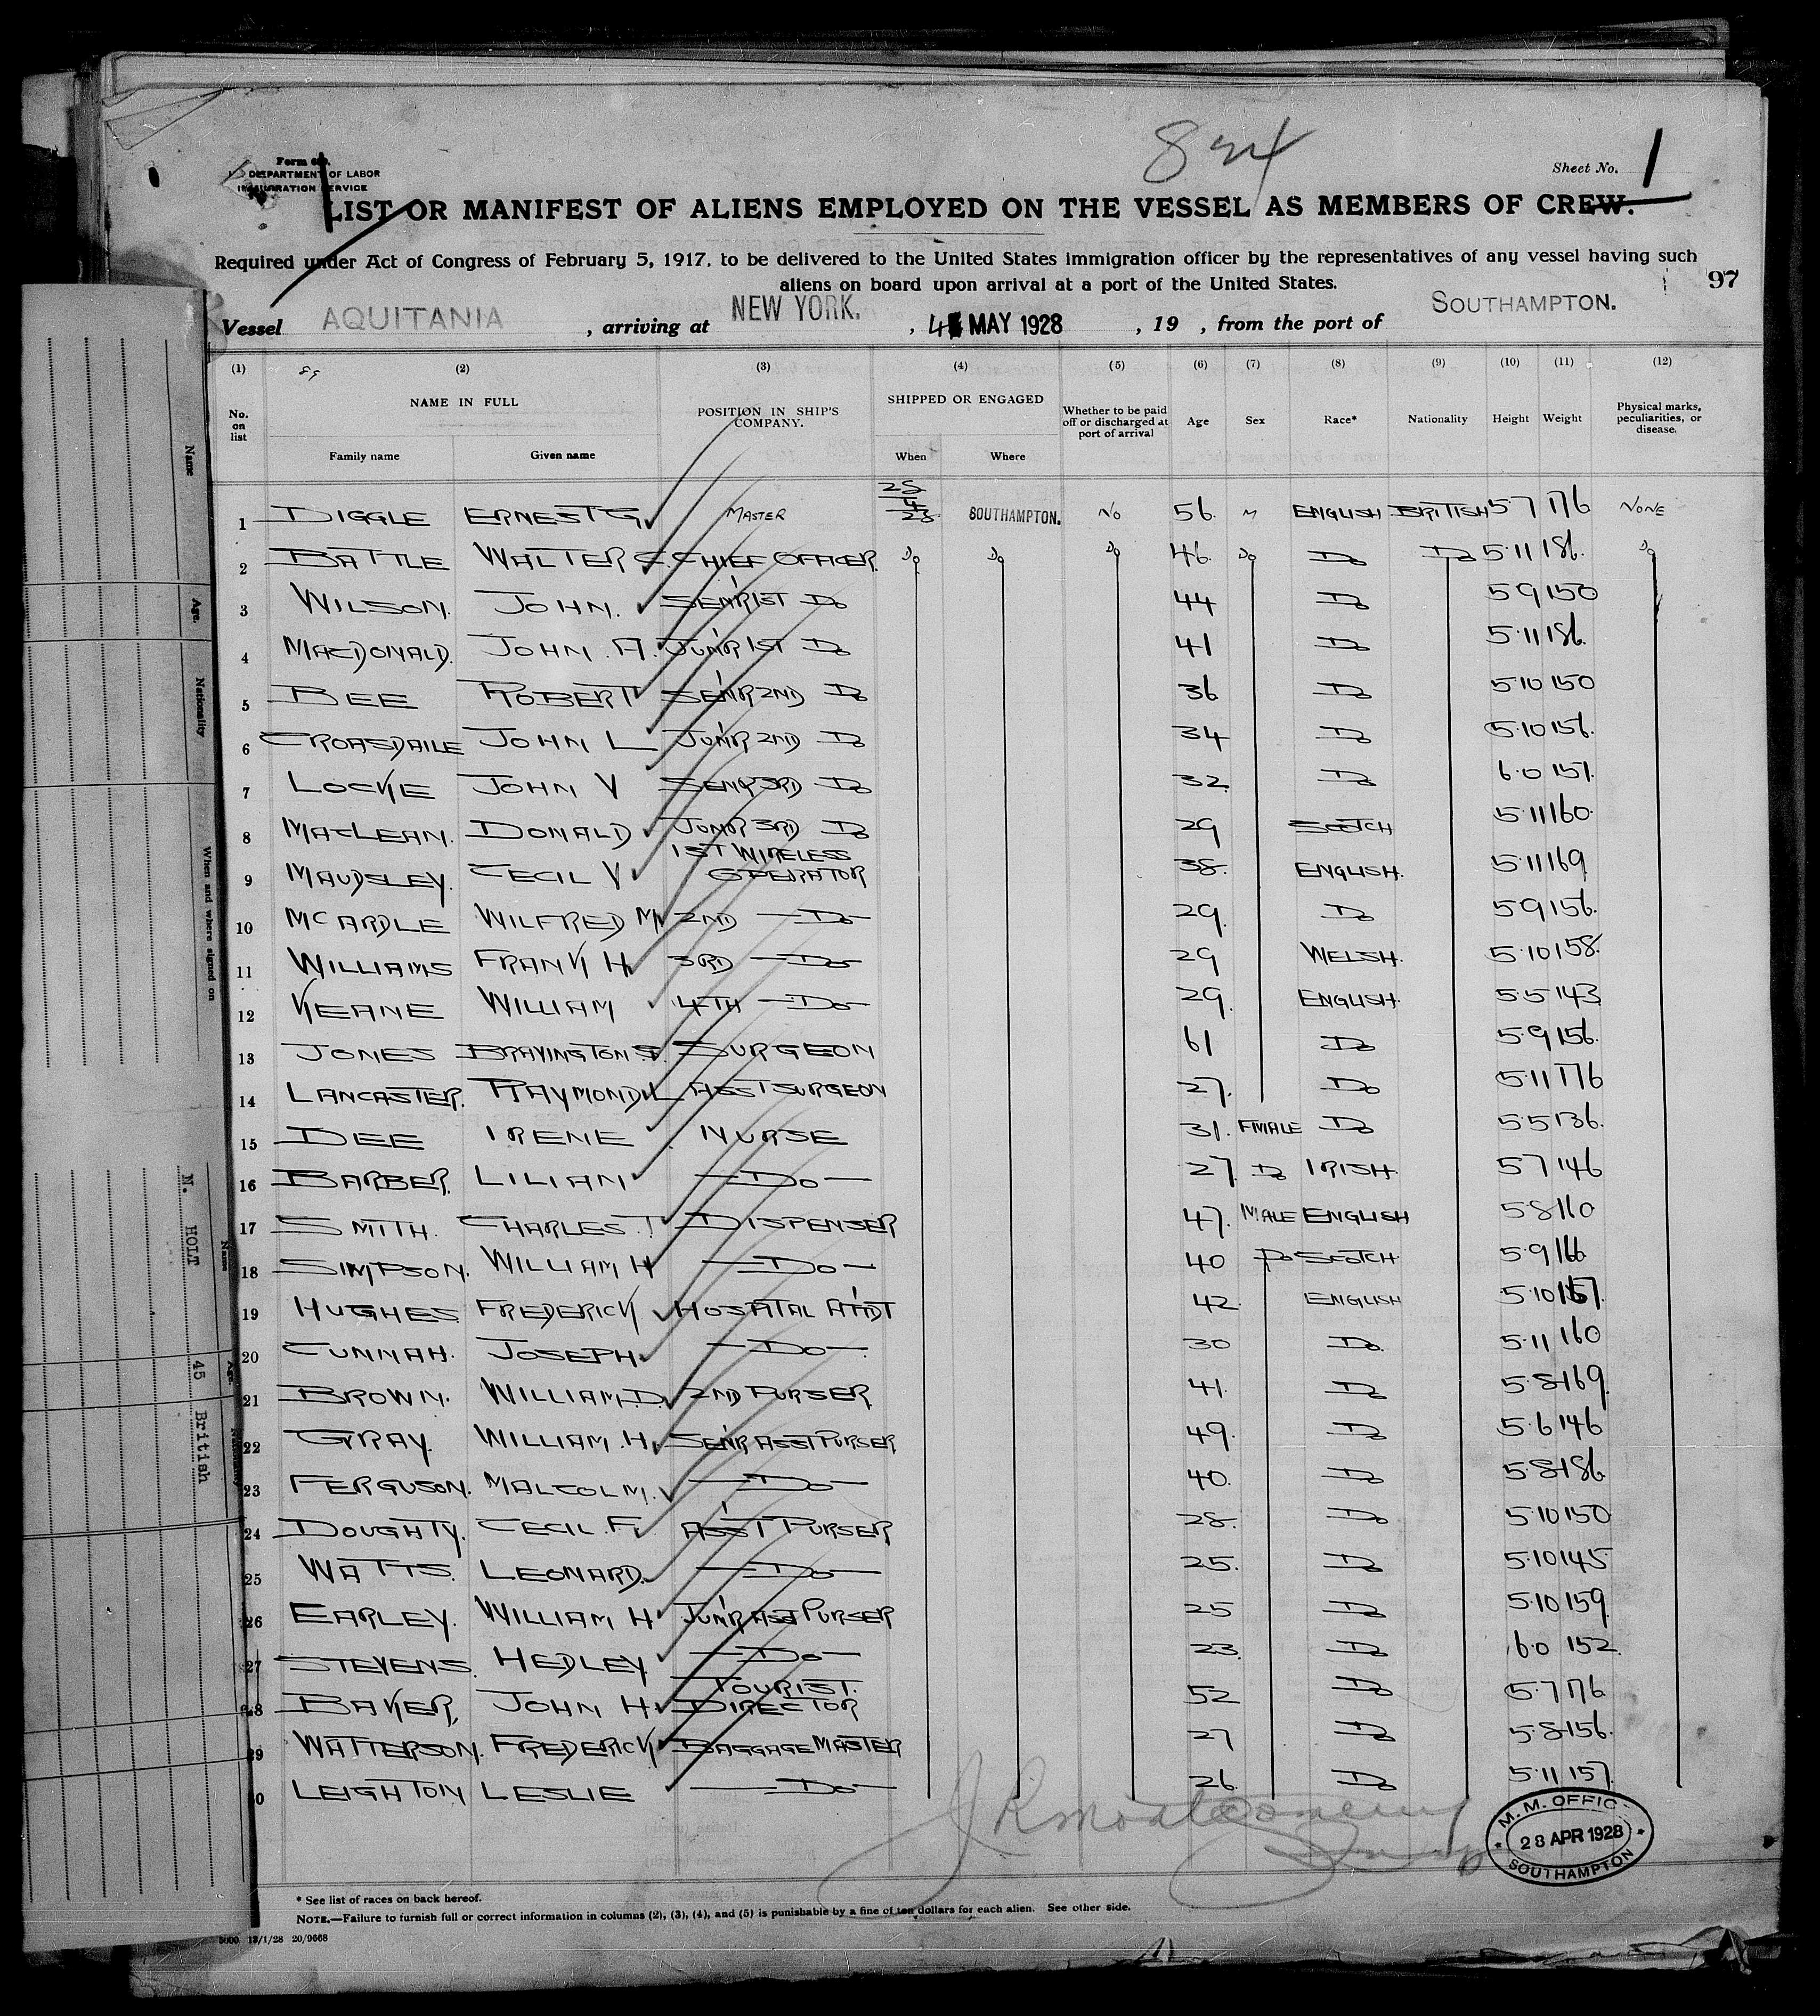 874
Form 6
DEPARTMENT OF LABOR
IMMIGRATION SERVICE
Sheet No. 1
LIST OR MANIFEST OF ALIENS EMPLOYED ON THE VESSEL AS MEMBERS OF CREW.
Required under Act of Congress of February 5, 1917, to be delivered to the United States immigration officer by the representatives of any vessel having such
aliens on board upon arrival at a port of the United States.
97
Vessel AQUITANIA, arriving at NEW YORK., 4 MAY 1928, 19 , from the port of SOUTHAMPTON.
(1) (2) (3) (4) (5) (6) (7) (8) (9) (10) (11) (12)
No. on list NAME IN FULL POSITION IN SHIP'S COMPANY. SHIPPED OR ENGAGED Whether to be paid off or discharged at port of arrival Age Sex Race* Nationality Height Weight Physical marks, peculiarities, or disease.
Family name Given name When Where
1 DIGGLE ERNEST G. MASTER 28/4/28 SOUTHAMPTON. NO 56. M ENGLISH BRITISH 5·7 176 NONE
2 BATTLE WALTER C. CHIEF OFFICER. DO DO DO 46. DO DO DO 5·11 186. DO
3 WILSON. JOHN. SEN'R 1ST DO 44 DO 5·9 150
4 MACDONALD. JOHN. A. JUN'R 1ST DO 41 DO 5·11 186.
5 BEE ROBERT SEN'R 2ND DO 36 DO 5·10 150
6 CROASDAILE JOHN L JUN'R 2ND DO 34 DO 5·10 156.
7 LOCKE JOHN V SEN'R 3RD DO 32. DO 6·0 151.
8 MACLEAN. DONALD JUN'R 3RD DO 29 SCOTCH 5·11 160.
9 MAUDSLEY. CECIL V 1ST WIRELESS OPERATOR 38. ENGLISH. 5·11 169
10 MCARDLE WILFRED M 2ND DO 29. DO 5·9 156.
11 WILLIAMS FRANK H 3RD DO 29 WELSH. 5·10 158.
12 KEANE WILLIAM 4TH DO 29. ENGLISH. 5·5 143
13 JONES BRAVINGTON S. SURGEON 61 DO 5·9 156.
14 LANCASTER. RAYMOND L ASST SURGEON 27. DO 5·11 176
15 DEE IRENE NURSE 31. FMALE DO 5·5 136.
16 BARBER. LILIAN DO 27. DO IRISH. 5·7 146
17 SMITH. CHARLES. T DISPENSER 47. MALE ENGLISH 5·8 160
18 SIMPSON. WILLIAM H DO 40 DO SCOTCH 5·9 166
19 HUGHES FREDERICK HOSPITAL ATT'DT 42. ENGLISH 5·10 157.
20 CUNNAH. JOSEPH. DO 30 DO. 5·11 160
21 BROWN. WILLIAM. D. 2ND PURSER 41. DO 5·8 169.
22 GRAY. WILLIAM. H. SEN'R ASST PURSER 49. DO 5·6 146
23 FERGUSON. MALCOLM. DO 40. DO 5·8 186
24 DOUGHTY. CECIL. F. ASS'T PURSER 28. DO 5·10 150
25 WATTS. LEONARD. DO 25. DO 5·10 145
26 EARLEY. WILLIAM H JUN'R ASST PURSER 25 DO 5·10 159.
27 STEVENS. HEDLEY DO 23. DO 6·0 152.
28 BAKER, JOHN H. TOURIST. DIRECTOR 52 DO 5·7 176
29 WATTERSON. FREDERICK BAGGAGE MASTER 27 DO 5·8 156.
0 LEIGHTON LESLIE DO 26. DO 5·11 157.
J R Montgomery
M. M. OFFIC
28 APR 1928
SOUTHAMPTON
* See list of races on back hereof.
NOTE.—Failure to furnish full or correct information in columns (2), (3), (4), and (5) is punishable by a fine of ten dollars for each alien. See other side.
5000 13/1/28 20/9668
Name
Age.
Nationality
When and where signed on
Name
N. HOLT
Age
45
Nationality
British